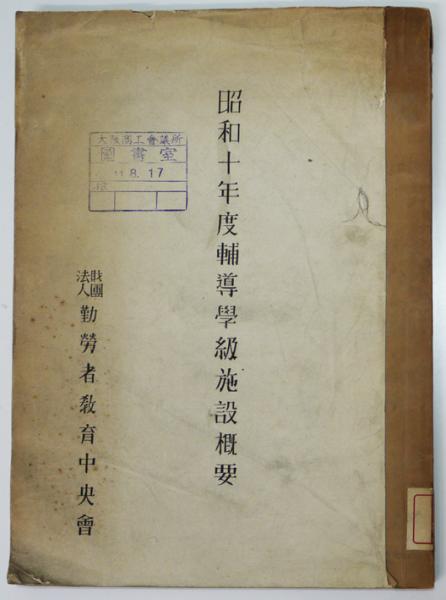 昭和十年度輔導學級施設概要
大阪商工會議所
圖書室
11.8.17
財團法人 勤勞者敎育中央會